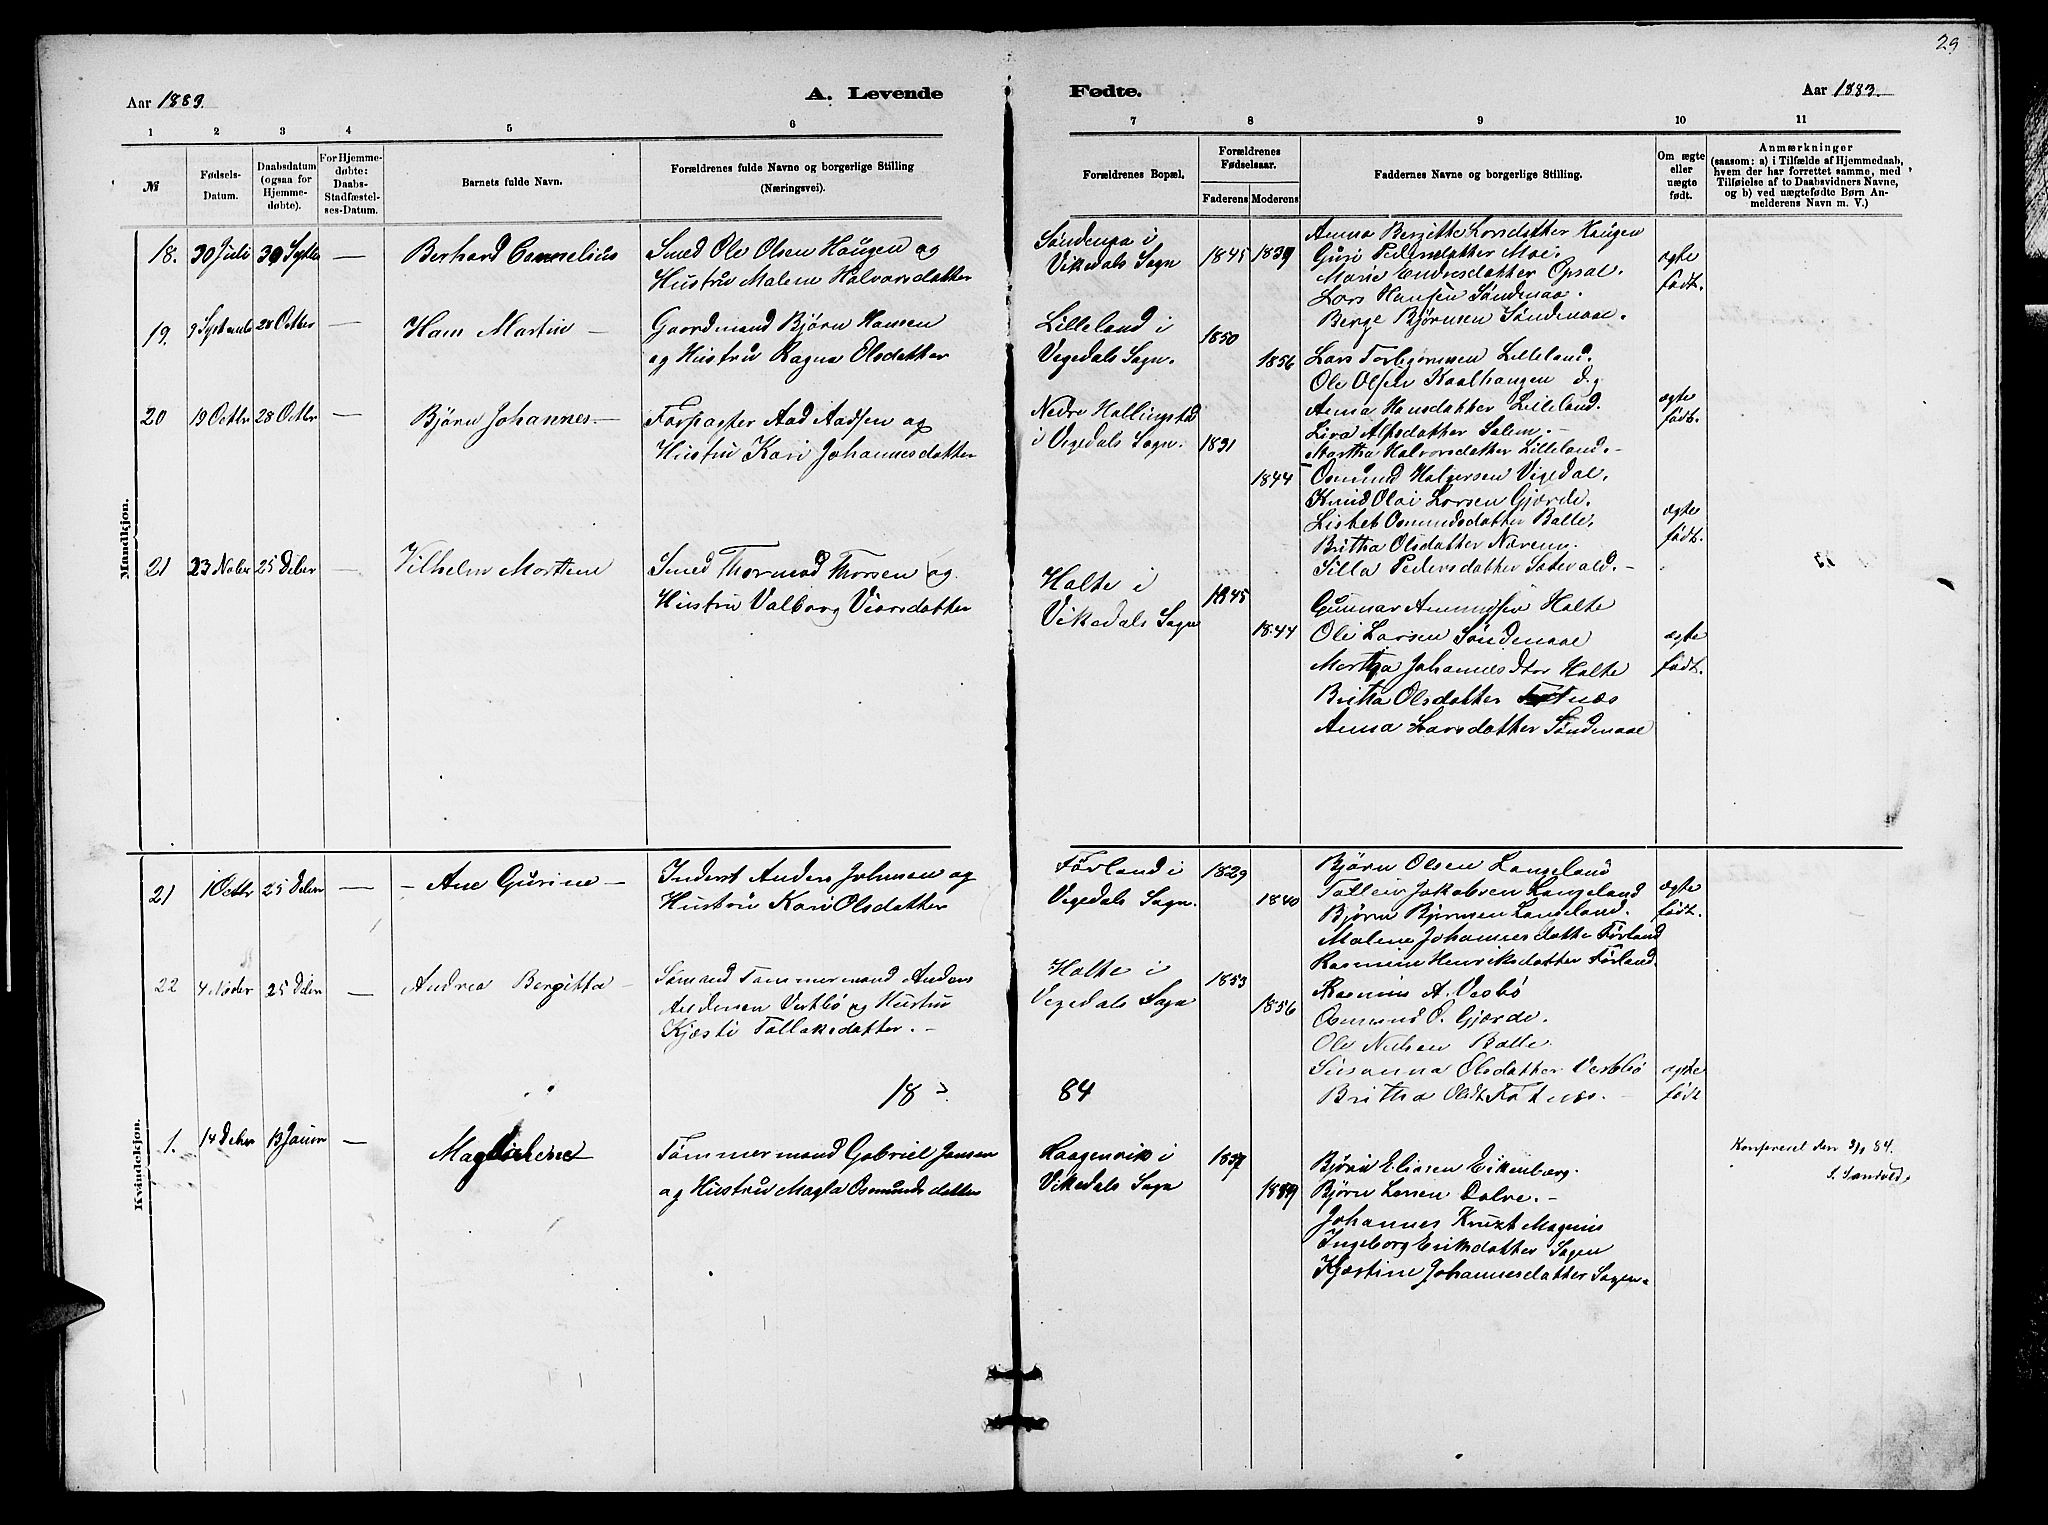 29
Aar 1883.
A. Levende
Fødte.
Aar 1883.
1 2 3 4 5 6 7 8 9 10 11
№
Fødsels-
Datum.
Daabsdatum
(ogsaa for
Hjemme-
døbte).
For Hjemme-
døbte:
Daabs-
Stadfæstel-
ses-Datum.
Barnets fulde Navn.
Forældrenes fulde Navne og borgerlige Stilling
(Næringsvei).
Forældrenes Bopæl.
Forældrenes
Fødselsaar.
Faderens Moderens
Faddernes Navne og borgerlige Stilling.
Om ægte
eller
uægte
født.
Anmærkninger
(saasom: a) i Tilfælde af Hjemmedaab,
hvem der har forrettet samme, med
Tilføielse af to Daabsvidners Navne,
og b) ved uægtefødte Børn An-
melderens Navn m. V.)
Mandkjøn.
18. 30 Juli 30 Sptbr — Berhard Cornelius
Smed Ole Olsen Haugen og
Hustru Malem Halvorsdatter
Søndenaa i
Vikedals Sogn
1845 1839
Anna Bergitte Larsdatter Haugen
Guri Pedersdatter Moi.
Marie Endresdatter Opsal.
Lars Hansen Søndenaa.
Berge Bjørnsen Søndenaa.
ægte
født.
19. 28 Octbr — Hans Martin —
Gaardmand Bjørn Hansen
og Hustru Ragna Olsdatter
Lilleland i
Vegedals Sogn.
1850
1856
Lars Torbjørnsen Lilleland.
Ole Olsen Kaalhaugen
Anna Hansdatter Lilleland.
Salem. —
Martha Halvorsdatter Lilleland. —
ægte
født.
20 19 Octbr 28 Octbr — Bjørn Johannes —
Forpagter Aad Aadsen og
Hustru Kari Johannesdatter
Nedre Hallingstad
i Vegedals Sogn.
1831
1844
Osmund Halversen Vigedal.
Knud Olai Larsen Gjerde.
Lisbet Osmundsdatter Balte.
Britha Olsdatter
Silla Pedersdatter —
ægte
født.
21 23 Nobr 25 Debr — Vilhelm Morttine
Smed Thormod Thorsen og
Hustru Valborg
Halte i
Vikedals Sogn
1845
1844
Gunnar Amundsen Halte
Ole Larsen Søndenaae
Martha Johannesdtr Halte
Britha Olsdatter Fatnæs
Anna Larsdatter Søndenaae
ægte
født.
Kvindekjøn.
21 1 Octbr 25 Debr — — Ane Gurine —
Inderst Anders Johnsen og
Hustru Kari Olsdatter
Førland i
Vegedals Sogn.
1829
1840
Bjørn Olsen Langeland
Tollein Jakobsen Langeland
Bjørn Bjørnsen Langeland.
Malene Johannesdatter Førland
Rasmine Henriksdatter Førland.
ægte
født.
22 25 Debr — Andrea Bergitta —
Sømand Tømmermand Anders
Andersen Vestbø og Hustru
Kjesti Tollaksdatter. —
Halte i
Vegedals Sogn
1853
1856
Rasmus A. Vesbø
Osmund O. Gjerde.
Ole Nielsen Balte.
Susanna Olsdatter Vestbø
Britha Olsdt Fatnæs. —
ægte
født
18 84
1. 14 Debr 13 Januar — Magdalene
Tømmermand Gabriel Jansen
og Hustru Magla Osmundsdatter
Haagenvik i
Vikedals Sogn
1837
1839
Bjørn Eliasen Eikenberg.
Bjørn Larsen Dalve. —
Johannes Kruzt Magnus
Ingeborg Eriksdatter Sagen
Kjestine Johannesdatter Sagen.
Konfereret den 84.
S. Sandved.